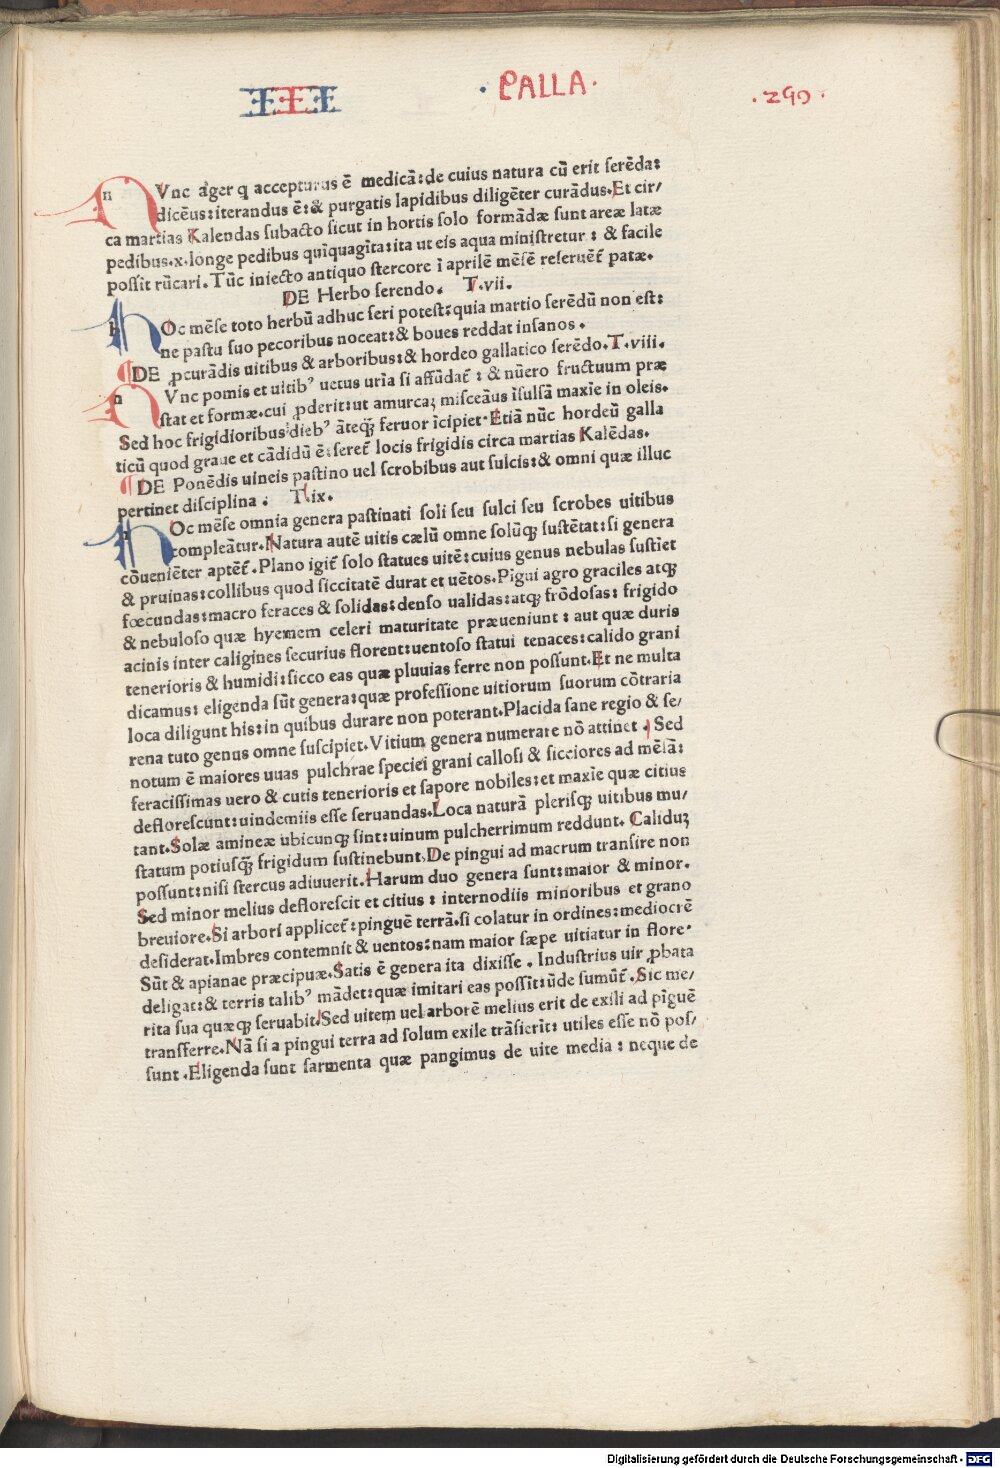 III · PALLA · · 290 ·
nVnc ager q accepturus ē medicā: de cuius natura cū erit ſerēda:
dicēus: iterandus ē: & purgatis lapidibus diligēter curādus. Et cir/
ca martias Kalendas ſubacto ſicut in hortis ſolo formādæ ſunt areæ latæ
pedibus .x. longe pedibus quīquagīta: ita ut eis aqua miniſtretur: & facile
poſſit rūcari. Tūc iniecto antiquo ſtercore ī aprilē mēſē reſeruēt̄ patæ.
DE Herbo ſerendo. T. vii.
hOc mēſe toto herbū adhuc ſeri poteſt: quia martio ſerēdū non eſt:
ne paſtu ſuo pecoribus noceat: & boues reddat inſanos.
¶ DE ꝓcurādis uitibus & arboribus: & hordeo gallatico ſerēdo. T. viii.
nVnc pomis et uitibꝰ uetus urīa ſi affūdat̄: & nūero fructuum præ
ſtat et formæ. cui ꝓderit: ut amurcaꝫ miſceāus īſulſā maxīe in oleis.
Sed hoc frigidioribus diebꝰ āteq̄ꝫ feruor īcipiet. Etiā nūc hordeū galla
ticū quod graue et cādidū ē: ſeret̄ locis frigidis circa martias Kalēdas.
¶ DE Ponēdis uineis paſtino uel ſcrobibus aut ſulcis: & omni quæ illuc
pertinet diſciplina. T. ix.
hOc mēſe omnia genera paſtinati ſoli ſeu ſulci ſeu ſcrobes uitibus
compleātur. Natura autē uitis cælū omne ſolūqꝫ ſuſtētat: ſi genera
cōueniēter aptēt̄. Plano igit̄ ſolo ſtatues uitē: cuius genus nebulas ſuſtīet
& pruinas: collibus quod ſiccitatē durat et uētos. Pigui agro graciles atqꝫ
fœcundas: macro feraces & ſolidas: denſo ualidas: atqꝫ frōdoſas: frigido
& nebuloſo quæ hyemem celeri maturitate præueniunt: aut quæ duris
acinis inter caligines ſecurius florent: uentoſo ſtatui tenaces: calido grani
tenerioris & humidi: ſicco eas quæ pluuias ferre non poſſunt. Et ne multa
dicamus: eligenda ſūt genera: quæ profeſſione uitiorum ſuorum cōtraria
loca diligunt his: in quibus durare non poterant. Placida ſane regio & ſe/
rena tuto genus omne ſuſcipiet. Vitium genera numerare nō attinet. Sed
notum ē maiores uuas pulchrae ſpeciei grani calloſi & ſicciores ad mēſā:
feraciſſimas uero & cutis tenerioris et ſapore nobiles: et maxīe quæ citius
defloreſcunt: uindemiis eſſe ſeruandas. Loca naturā pleriſqꝫ uitibus mu/
tant. Solæ amineæ ubicunqꝫ ſint: uinum pulcherrimum reddunt. Caliduꝫ
ſtatum potiuſq̄ꝫ frigidum ſuſtinebunt. De pingui ad macrum tranſire non
poſſunt: niſi ſtercus adiuuerit. Harum duo genera ſunt: maior & minor.
Sed minor melius defloreſcit et citius: internodiis minoribus et grano
breuiore. Si arbori applicet̄: pinguē terrā. ſi colatur in ordines: mediocrē
deſiderat. Imbres contemnit & uentos: nam maior ſæpe uitiatur in flore.
Sūt & apianae præcipuæ. Satis ē genera ita dixiſſe. Induſtrius uir ꝓbata
deligat: & terris talibꝰ mādet: quæ imitari eas poſſit: ūde ſumūt̄. Sic me/
rita ſua quæqꝫ ſeruabit. Sed uitem uel arborē melius erit de exili ad pīguē
tranſferre. Nā ſi a pingui terra ad ſolum exile trāſierīt: utiles eſſe nō poſ/
ſunt. Eligenda ſunt ſarmenta quæ pangimus de uite media: neque de
Digitalisierung gefördert durch die Deutsche Forschungsgemeinschaft - DFG